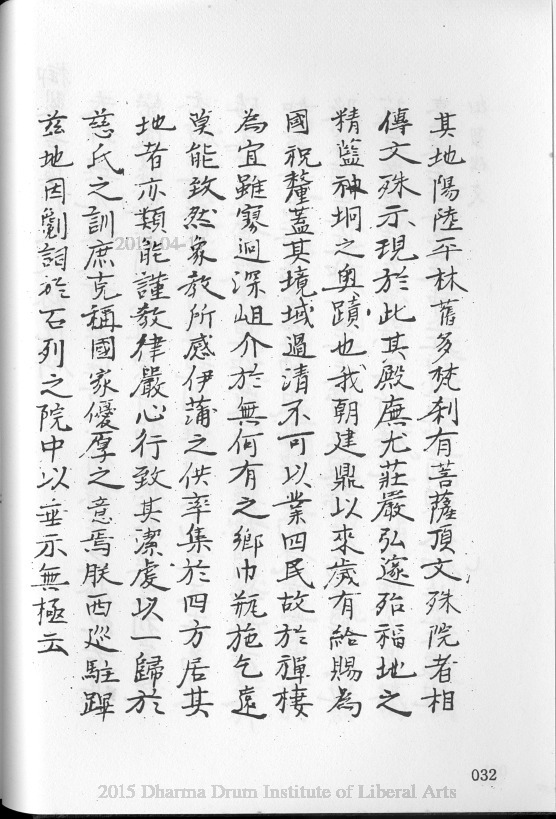 其地陽陸平林舊多梵剎有菩薩頂文殊院者相
傳文殊示現於此其殿廡尤莊嚴弘邃殆福地之
精藍神坰之奧蹟也我朝建鼎以來歲有給賜為
國祝釐蓋其境域過清不可以業四民故於禪棲
為宜雖寥迥深岨介於無何有之鄉巾瓶施乞遠
莫能致然象教所感伊蒲之供率集於四方居其
地者亦類能謹教律嚴心行致其潔虔以一歸於
慈氏之訓庶克稱國家優厚之意焉朕西巡駐蹕
茲地因劖詞於石列之院中以垂示無極云
032
2015 Dharma Drum Institute of Liberal Arts